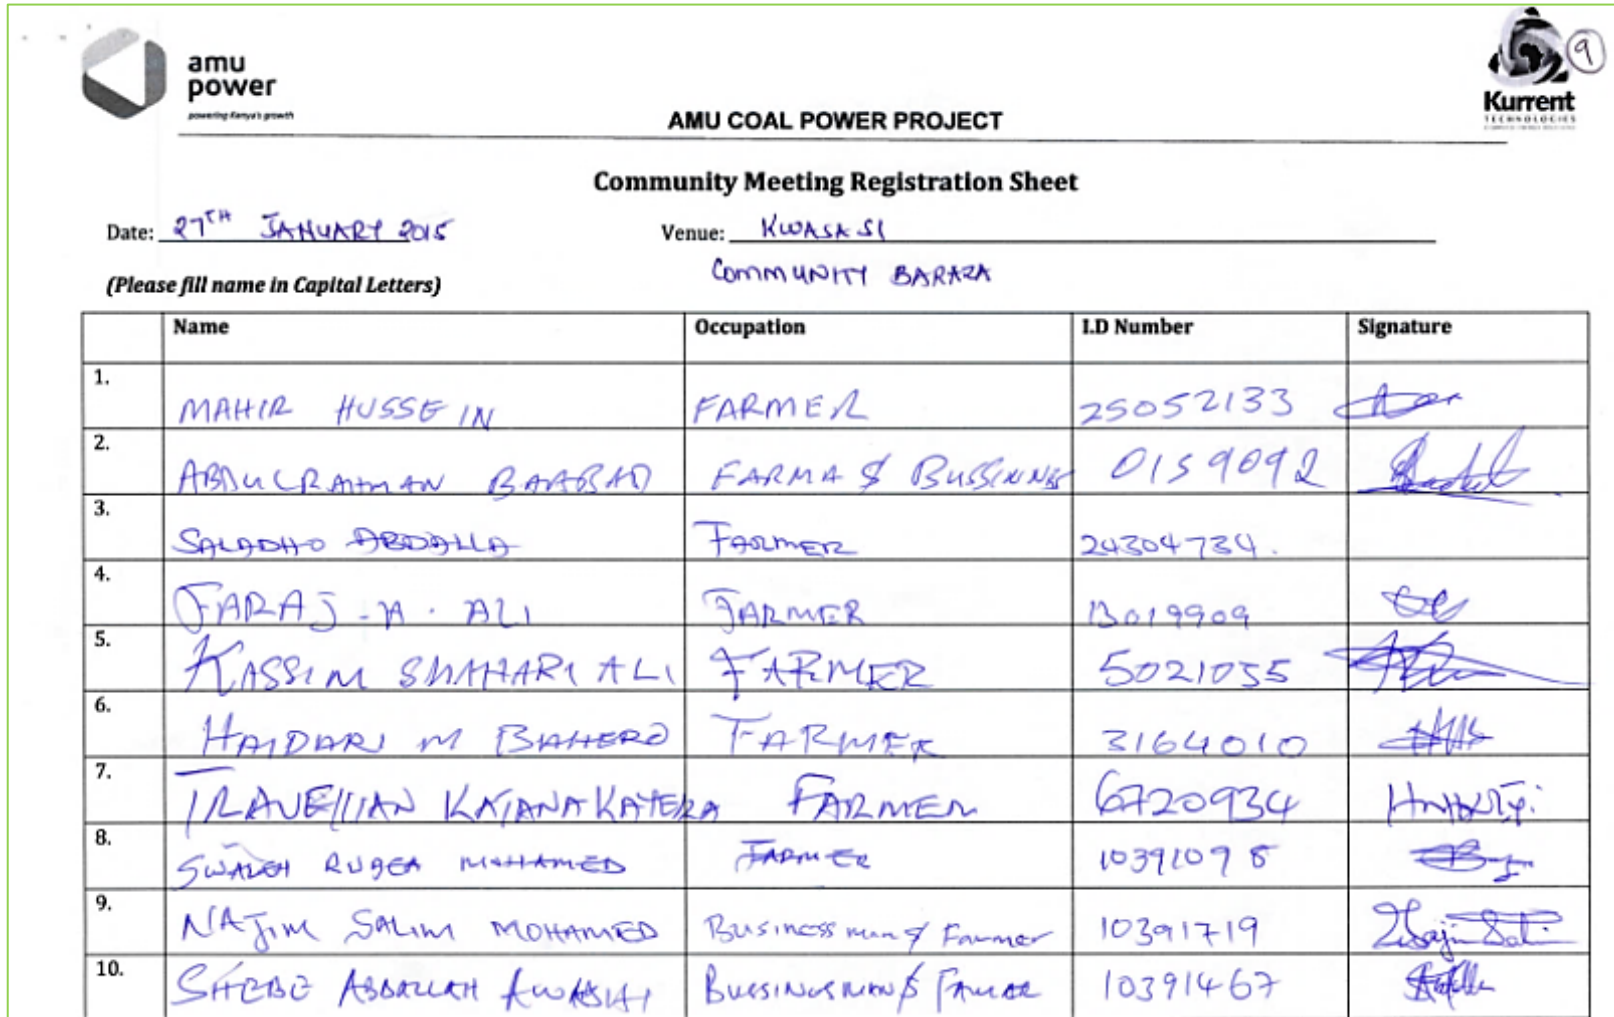 amu
power
powering Kenya's growth
9
Kurrent
TECHNOLOGIES
AMU COAL POWER PROJECT
Community Meeting Registration Sheet
Date: 27TH JANUARY 2015 Venue: KWASASI
COMMUNITY BARAZA
(Please fill name in Capital Letters)
Name Occupation I.D Number Signature
1. MAHIR HUSSEIN FARMER 25052133
2. ABDULRAHMAN BAABAD FARMA & BUSSINNES 0159092
3. SALADHO ABDALLA FARMER 24304734.
4. FARAJ -A. ALI FARMER 13019909
5. KASSIM SHAHARI ALI FARMER 5021055
6. HAIDARI M BAHERO FARMER 3164010
7. KATANA KATERA FARMER 6720934
8. SWALEH MOHAMED FARMER 10391098
9. NAJIM SALIM MOHAMED Businessman & Farmer 10391719
10. SHEBE ABDALLAH 10391467